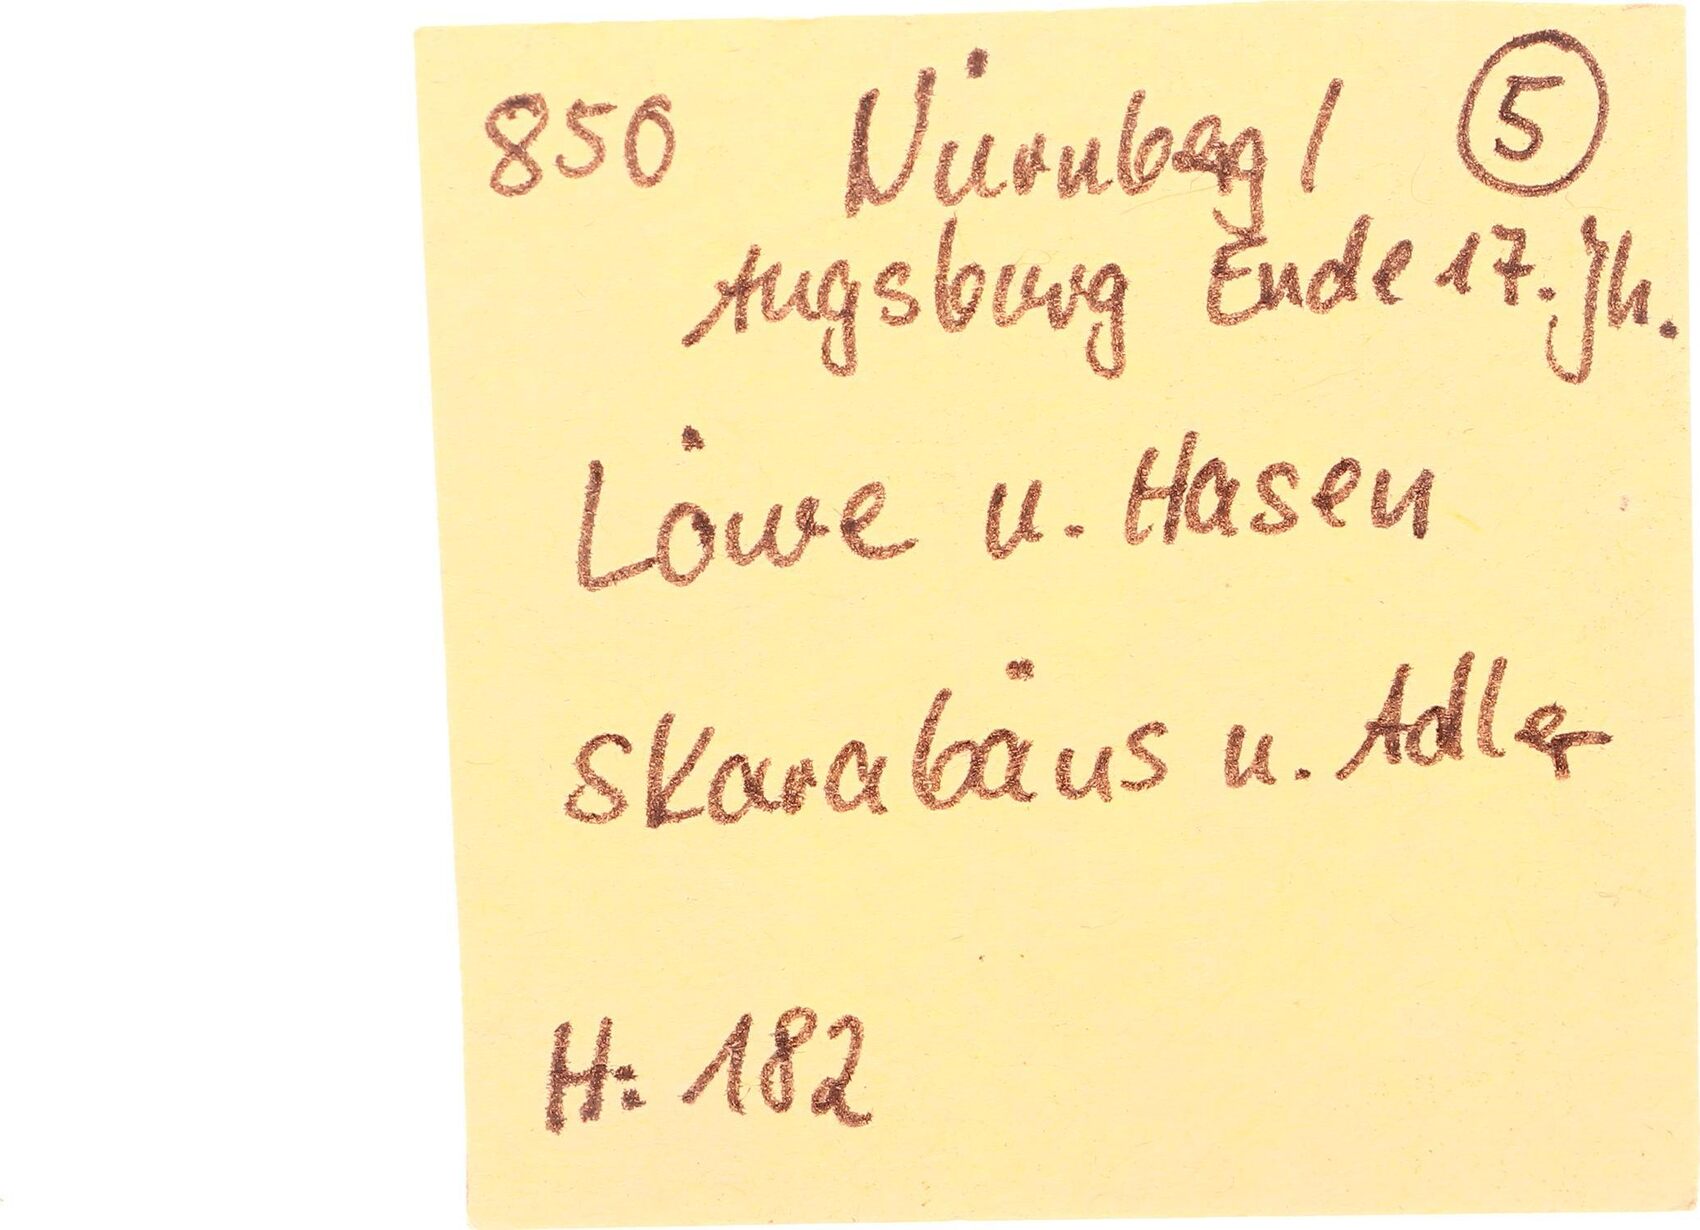 850 Nürnberg / 5
Augsburg Ende 17. Jh.
Löwe u. Hasen
Skarabäus u. Adler
H: 182